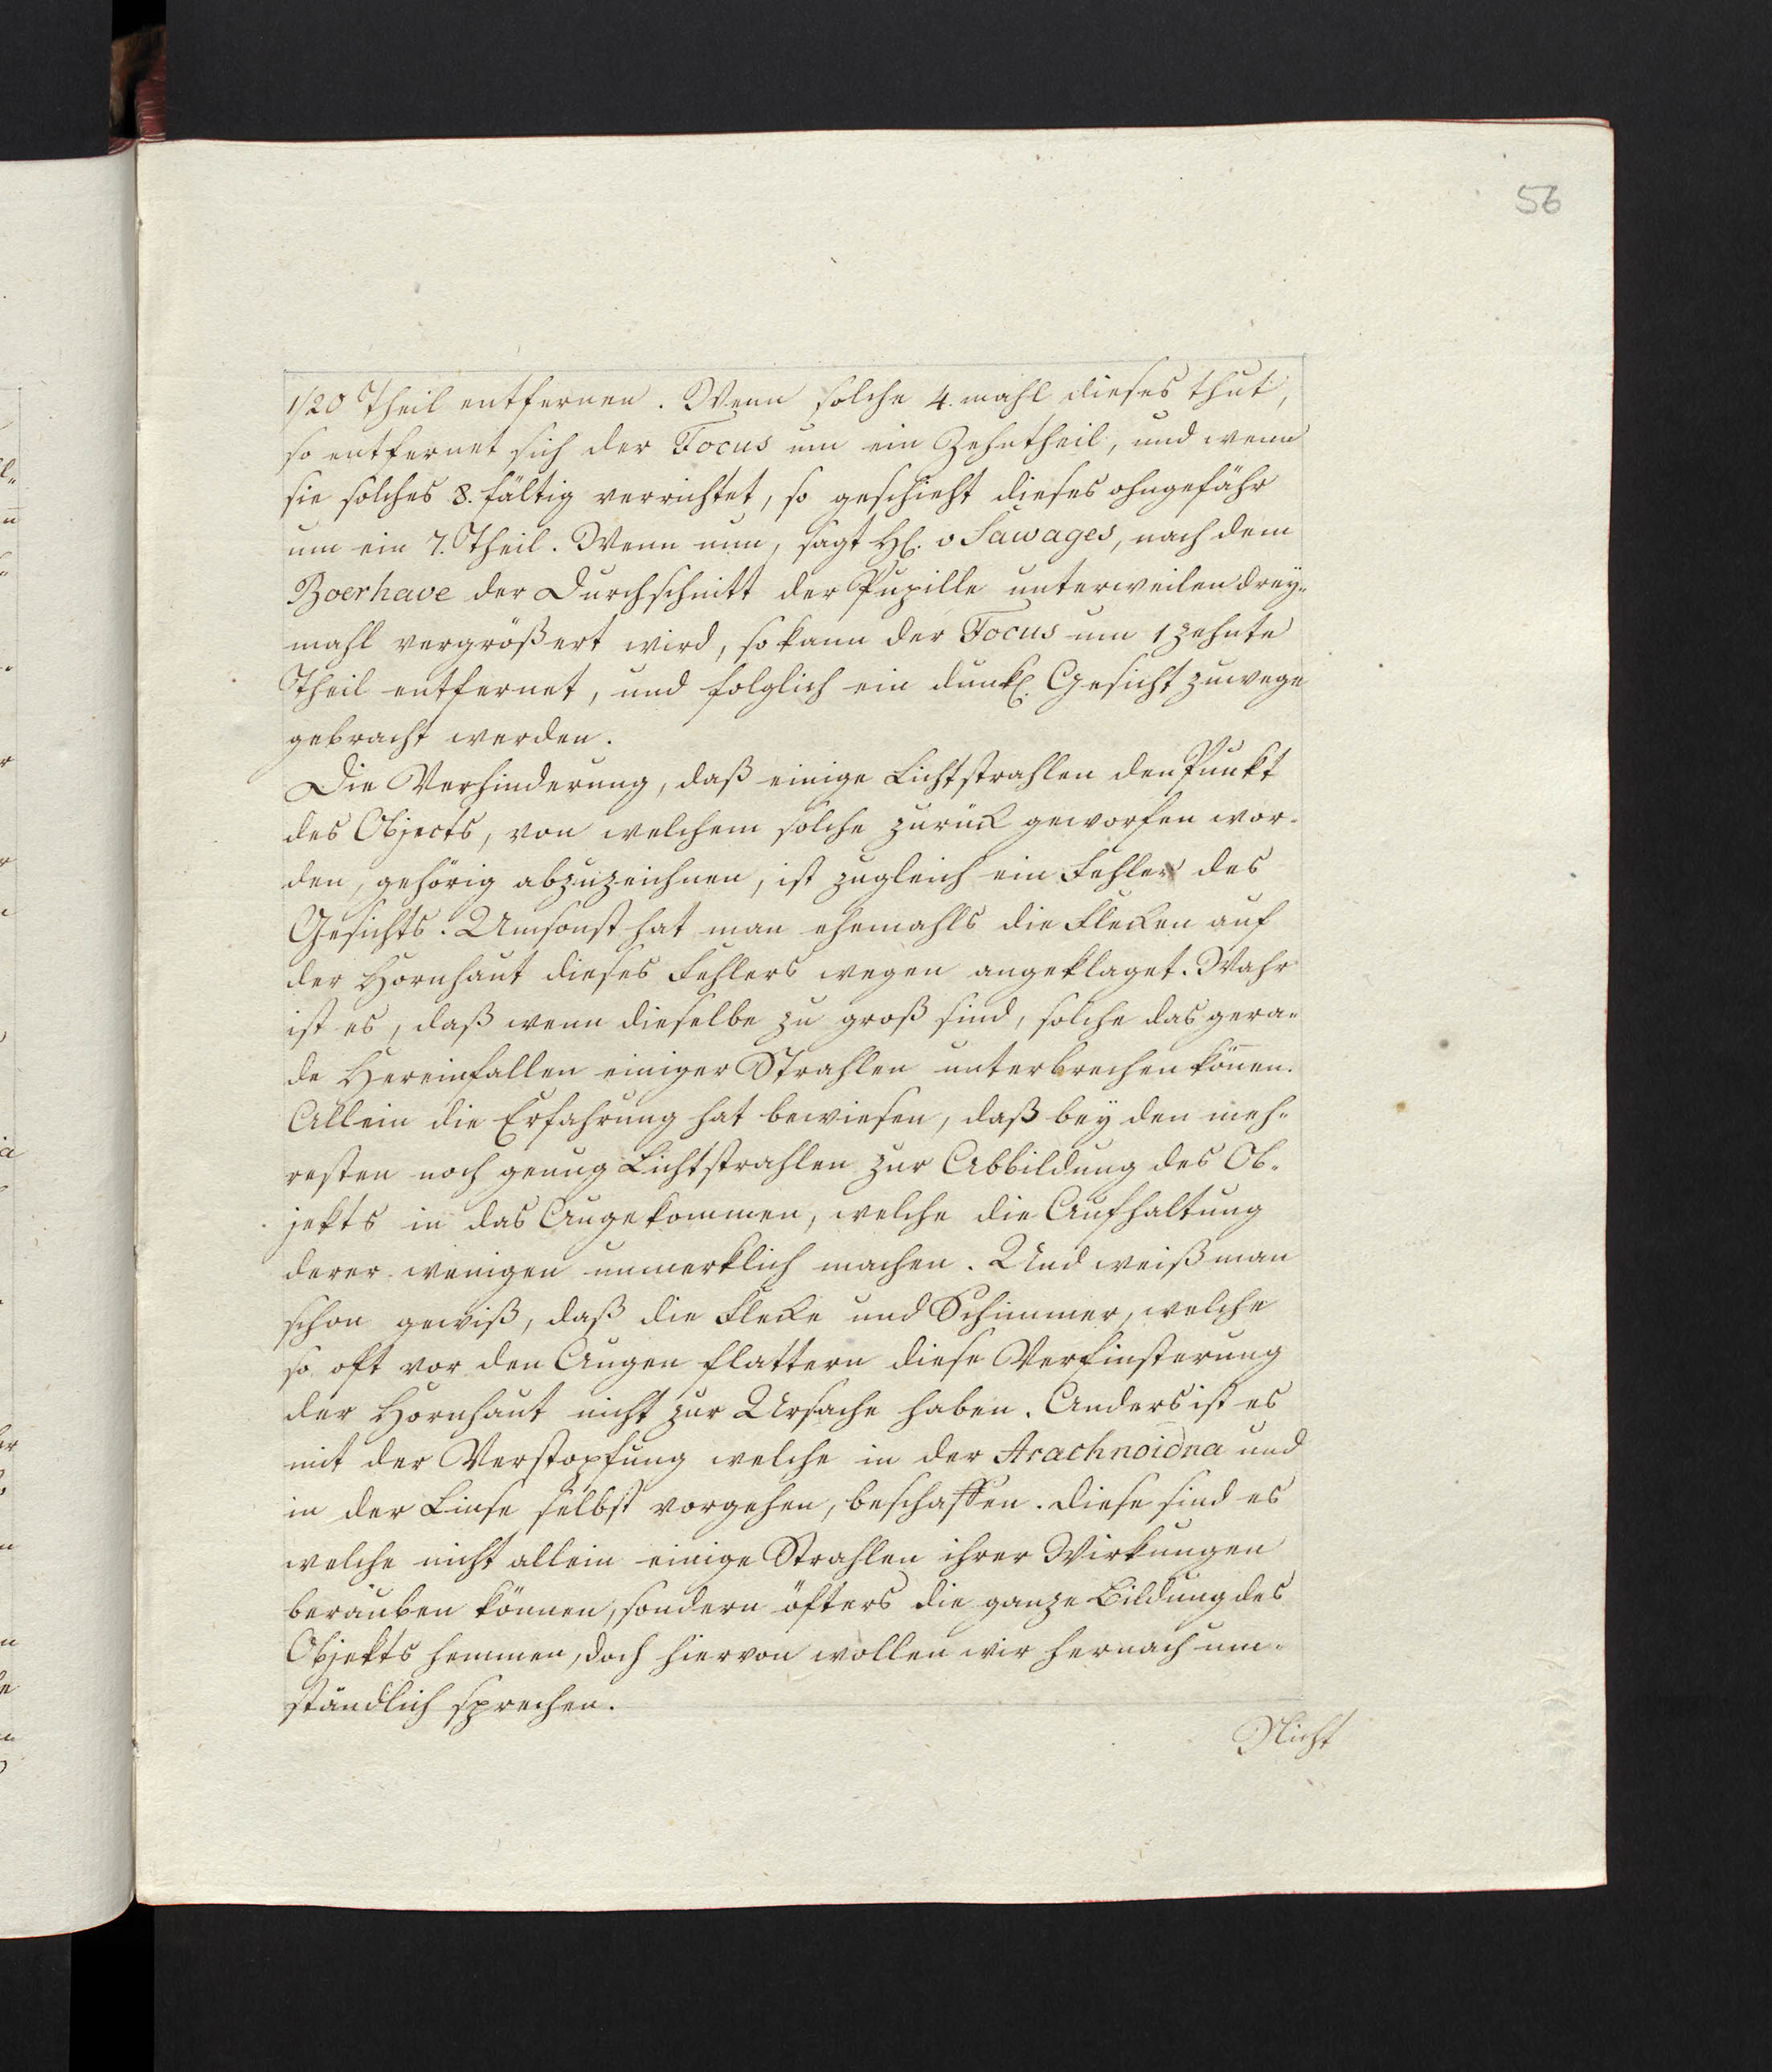 56
1/20 Theil entfernen. Wenn solche 4. mahl dieses thut,
so entfernet sich der Focus um ein Zehntheil, und wenn
sie solches 8. fältig verrichtet, so geschieht dieses ohngefähr
um ein 7. Theil. Wenn nun, sagt H. v Sawages, nach dem
Boerhave der Durchschnitt der Pupille unterweilen drey-
mahl vergrößert wird, so kann der Focus um 1 zehnte
Theil entfernet, und folglich ein dunkl. Gesicht zuwege
gebracht werden.
Die Verhinderung, daß einige Lichtstrahlen den Punkt
des Objects, von welchem solche zurück geworfen wor-
den, gehörig abzuzeichnen, ist zugleich ein Fehler des
Gesichts. Umsonst hat man ehemahls die Flecken auf
der Hornhaut dieses Fehlers wegen angeklaget. Wahr
ist es, daß wenn dieselbe zu groß sind, solche das gera-
de Hereinfallen einiger Strahlen unterbrechen kön̄en.
Allein die Erfahrung hat bewiesen, daß bey den meh-
resten noch genug Lichtstrahlen zur Abbildung des Ob-
jekts in das Auge kommen, welche die Aufhaltung
derer wenigen unmerklich machen. Und weiß man
schon gewiß, daß die Flecke und Schimmer, welche
so oft vor den Augen flattern diese Verfinsterung
der Hornhaut nicht zur Ursache haben. Anders ist es
mit der Verstopfung welche in der Arachnoidna und
in der Linse selbst vorgehen, beschaffen. Diese sind es
welche nicht allein einige Strahlen ihrer Wirkungen
berauben können, sondern öfters die ganze Bildung des
Objekts hemmen, doch hiervon wollen wir hernach um-
ständlich sprechen.
Nicht